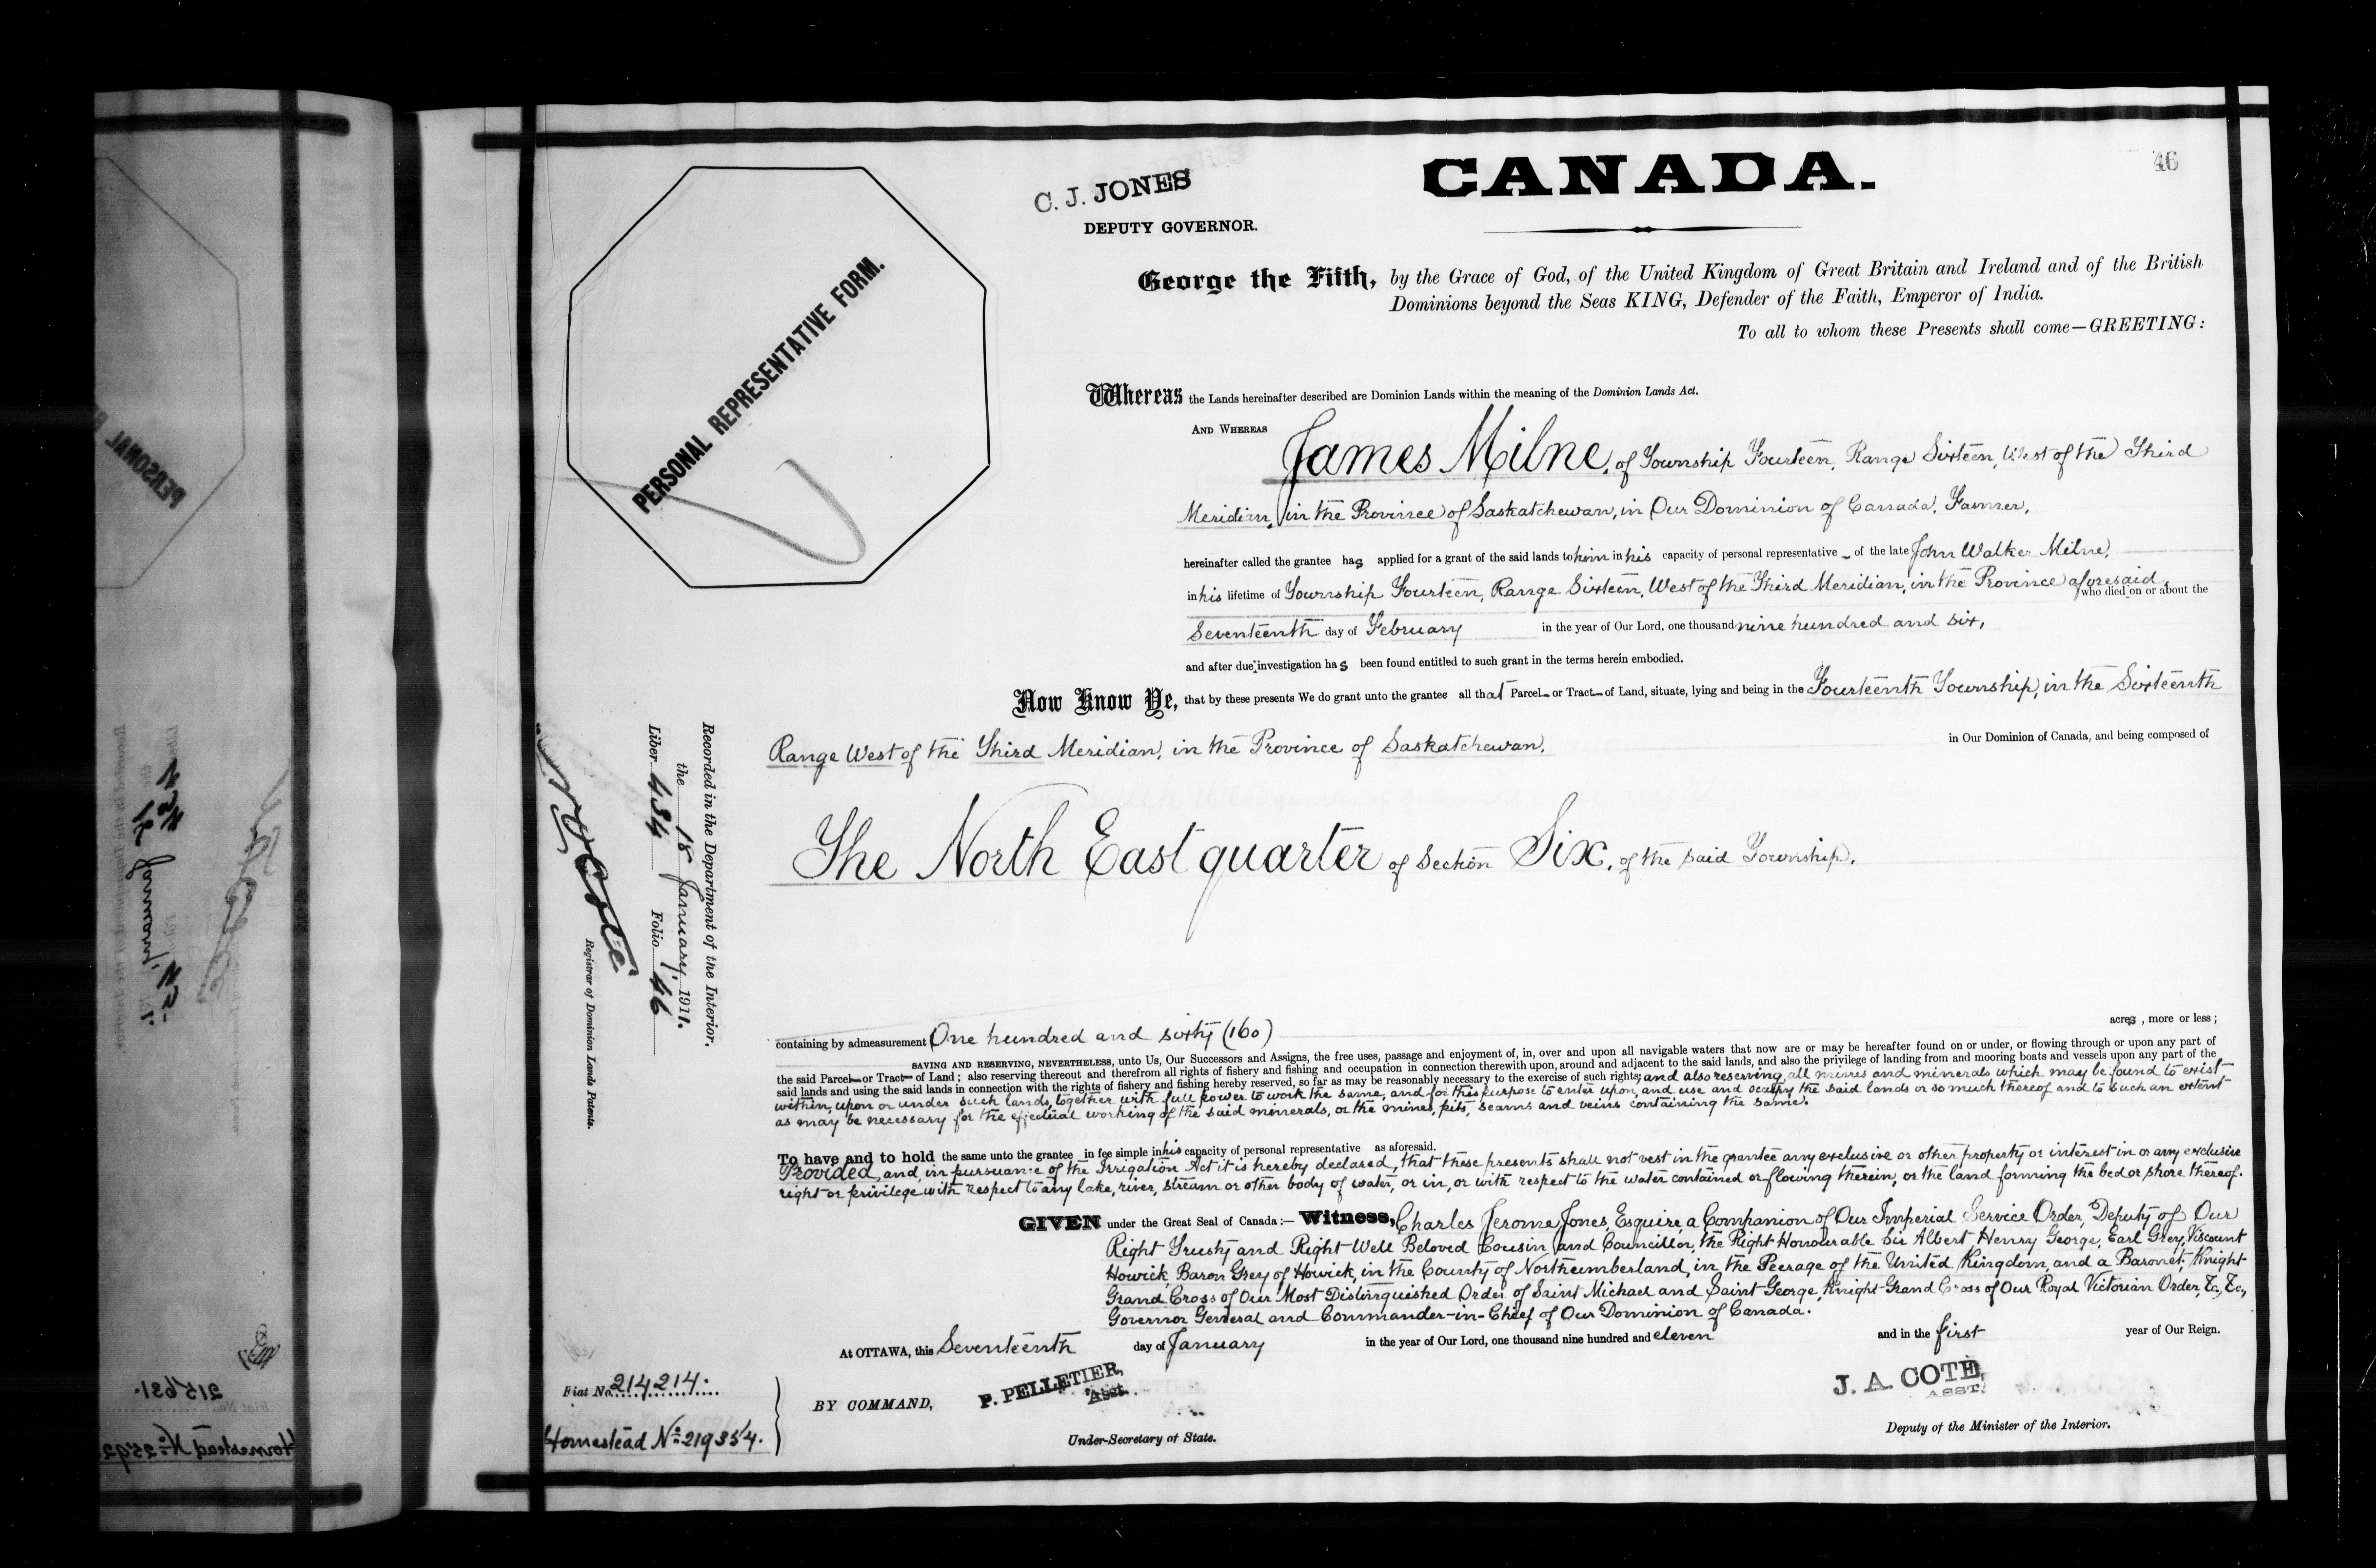 46
C. J. JONES
DEPUTY GOVERNOR.
CANADA.
PERSONAL REPRESENTATIVE FORM.
George the Fifth, by the Grace of God, of the United Kingdom of Great Britain and Ireland and of the British
Dominions beyond the Seas KING, Defender of the Faith, Emperor of India.
To all to whom these Presents shall come—GREETING:
Whereas the Lands hereinafter described are Dominion Lands within the meaning of the Dominion Lands Act.
AND WHEREAS
James Milne, of Township Fourteen, Range Sixteen, West of the Third
Meridian, in the Province of Saskatchewan, in Our Dominion of Canada, Farmer,
hereinafter called the grantee has applied for a grant of the said lands to him in his capacity of personal representative of the late John Walker Milne,
in his lifetime of Township Fourteen, Range Sixteen, West of the Third Meridian, in the Province aforesaid, who died on or about the
Seventeenth day of February in the year of Our Lord, one thousand nine hundred and six,
and after due investigation has been found entitled to such grant in the terms herein embodied.
Now Know Ye, that by these presents We do grant unto the grantee all that Parcel or Tract of Land, situate, lying and being in the Fourteenth Township, in the Sixteenth
Range West of the Third Meridian, in the Province of Saskatchewan, in Our Dominion of Canada, and being composed of
The North East quarter of Section Six, of the said Township.
containing by admeasurement One hundred and sixty (160) acres, more or less;
SAVING AND RESERVING, NEVERTHELESS, unto Us, Our Successors and Assigns, the free uses, passage and enjoyment of, in, over and upon all navigable waters that now are or may be hereafter found on or under, or flowing through or upon any part of
the said Parcel or Tract of Land; also reserving thereout and therefrom all rights of fishery and fishing and occupation in connection therewith upon, around and adjacent to the said lands, and also the privilege of landing from and mooring boats and vessels upon any part of the
said lands and using the said lands in connection with the rights of fishery and fishing hereby reserved, so far as may be reasonably necessary to the exercise of such rights; and also reserving all mines and minerals which may be found to exist
within, upon or under such lands, together with full power to work the same, and for this purpose to enter upon, and use and occupy the said lands or so much thereof and to such an extent
as may be necessary for the effectual working of the said minerals, or the mines, pits, seams and veins containing the same.
To have and to hold the same unto the grantee in fee simple in his capacity of personal representative as aforesaid.
Provided, and, in pursuance of the Irrigation Act it is hereby declared, that these presents shall not vest in the grantee any exclusive or other property or interest in or any exclusive
right or privilege with respect to any lake, river, stream or other body of water, or in, or with respect to the water contained or flowing therein, or the land forming the bed or shore thereof.
GIVEN under the Great Seal of Canada:— Witness, Charles Jerome Jones, Esquire, a Companion of Our Imperial Service Order, Deputy of Our
Right Trusty and Right Well Beloved Cousin and Councillor, the Right Honourable Sir Albert Henry George, Earl Grey, Viscount
Howick, Baron Grey of Howick, in the County of Northumberland, in the Peerage of the United Kingdom, and a Baronet; Knight
Grand Cross of Our Most Distinguished Order of Saint Michael and Saint George, Knight Grand Cross of Our Royal Victorian Order, &c, &c,
Governor General and Commander-in-Chief of Our Dominion of Canada.
At OTTAWA, this Seventeenth day of January in the year of Our Lord, one thousand nine hundred and eleven and in the first year of Our Reign.
BY COMMAND,
P. PELLETIER,
Asst.
Under-Secretary of State.
J. A. COTÉ,
ASST.
Deputy of the Minister of the Interior.
Recorded in the Department of the Interior,
the 18 January, 1911.
Liber 434 Folio 46
Registrar of Dominion Lands Patents.
Fiat No. 214214.
Homestead No. 219354.